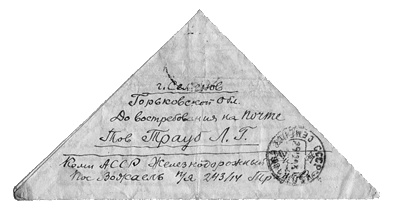 г. Семенов
Горьковской Обл.
До востребования на Почте
Тов Трауб Л. Г.
Коми АССР Железнодорожный
Пос Вожаель п/я 243/14
СССР